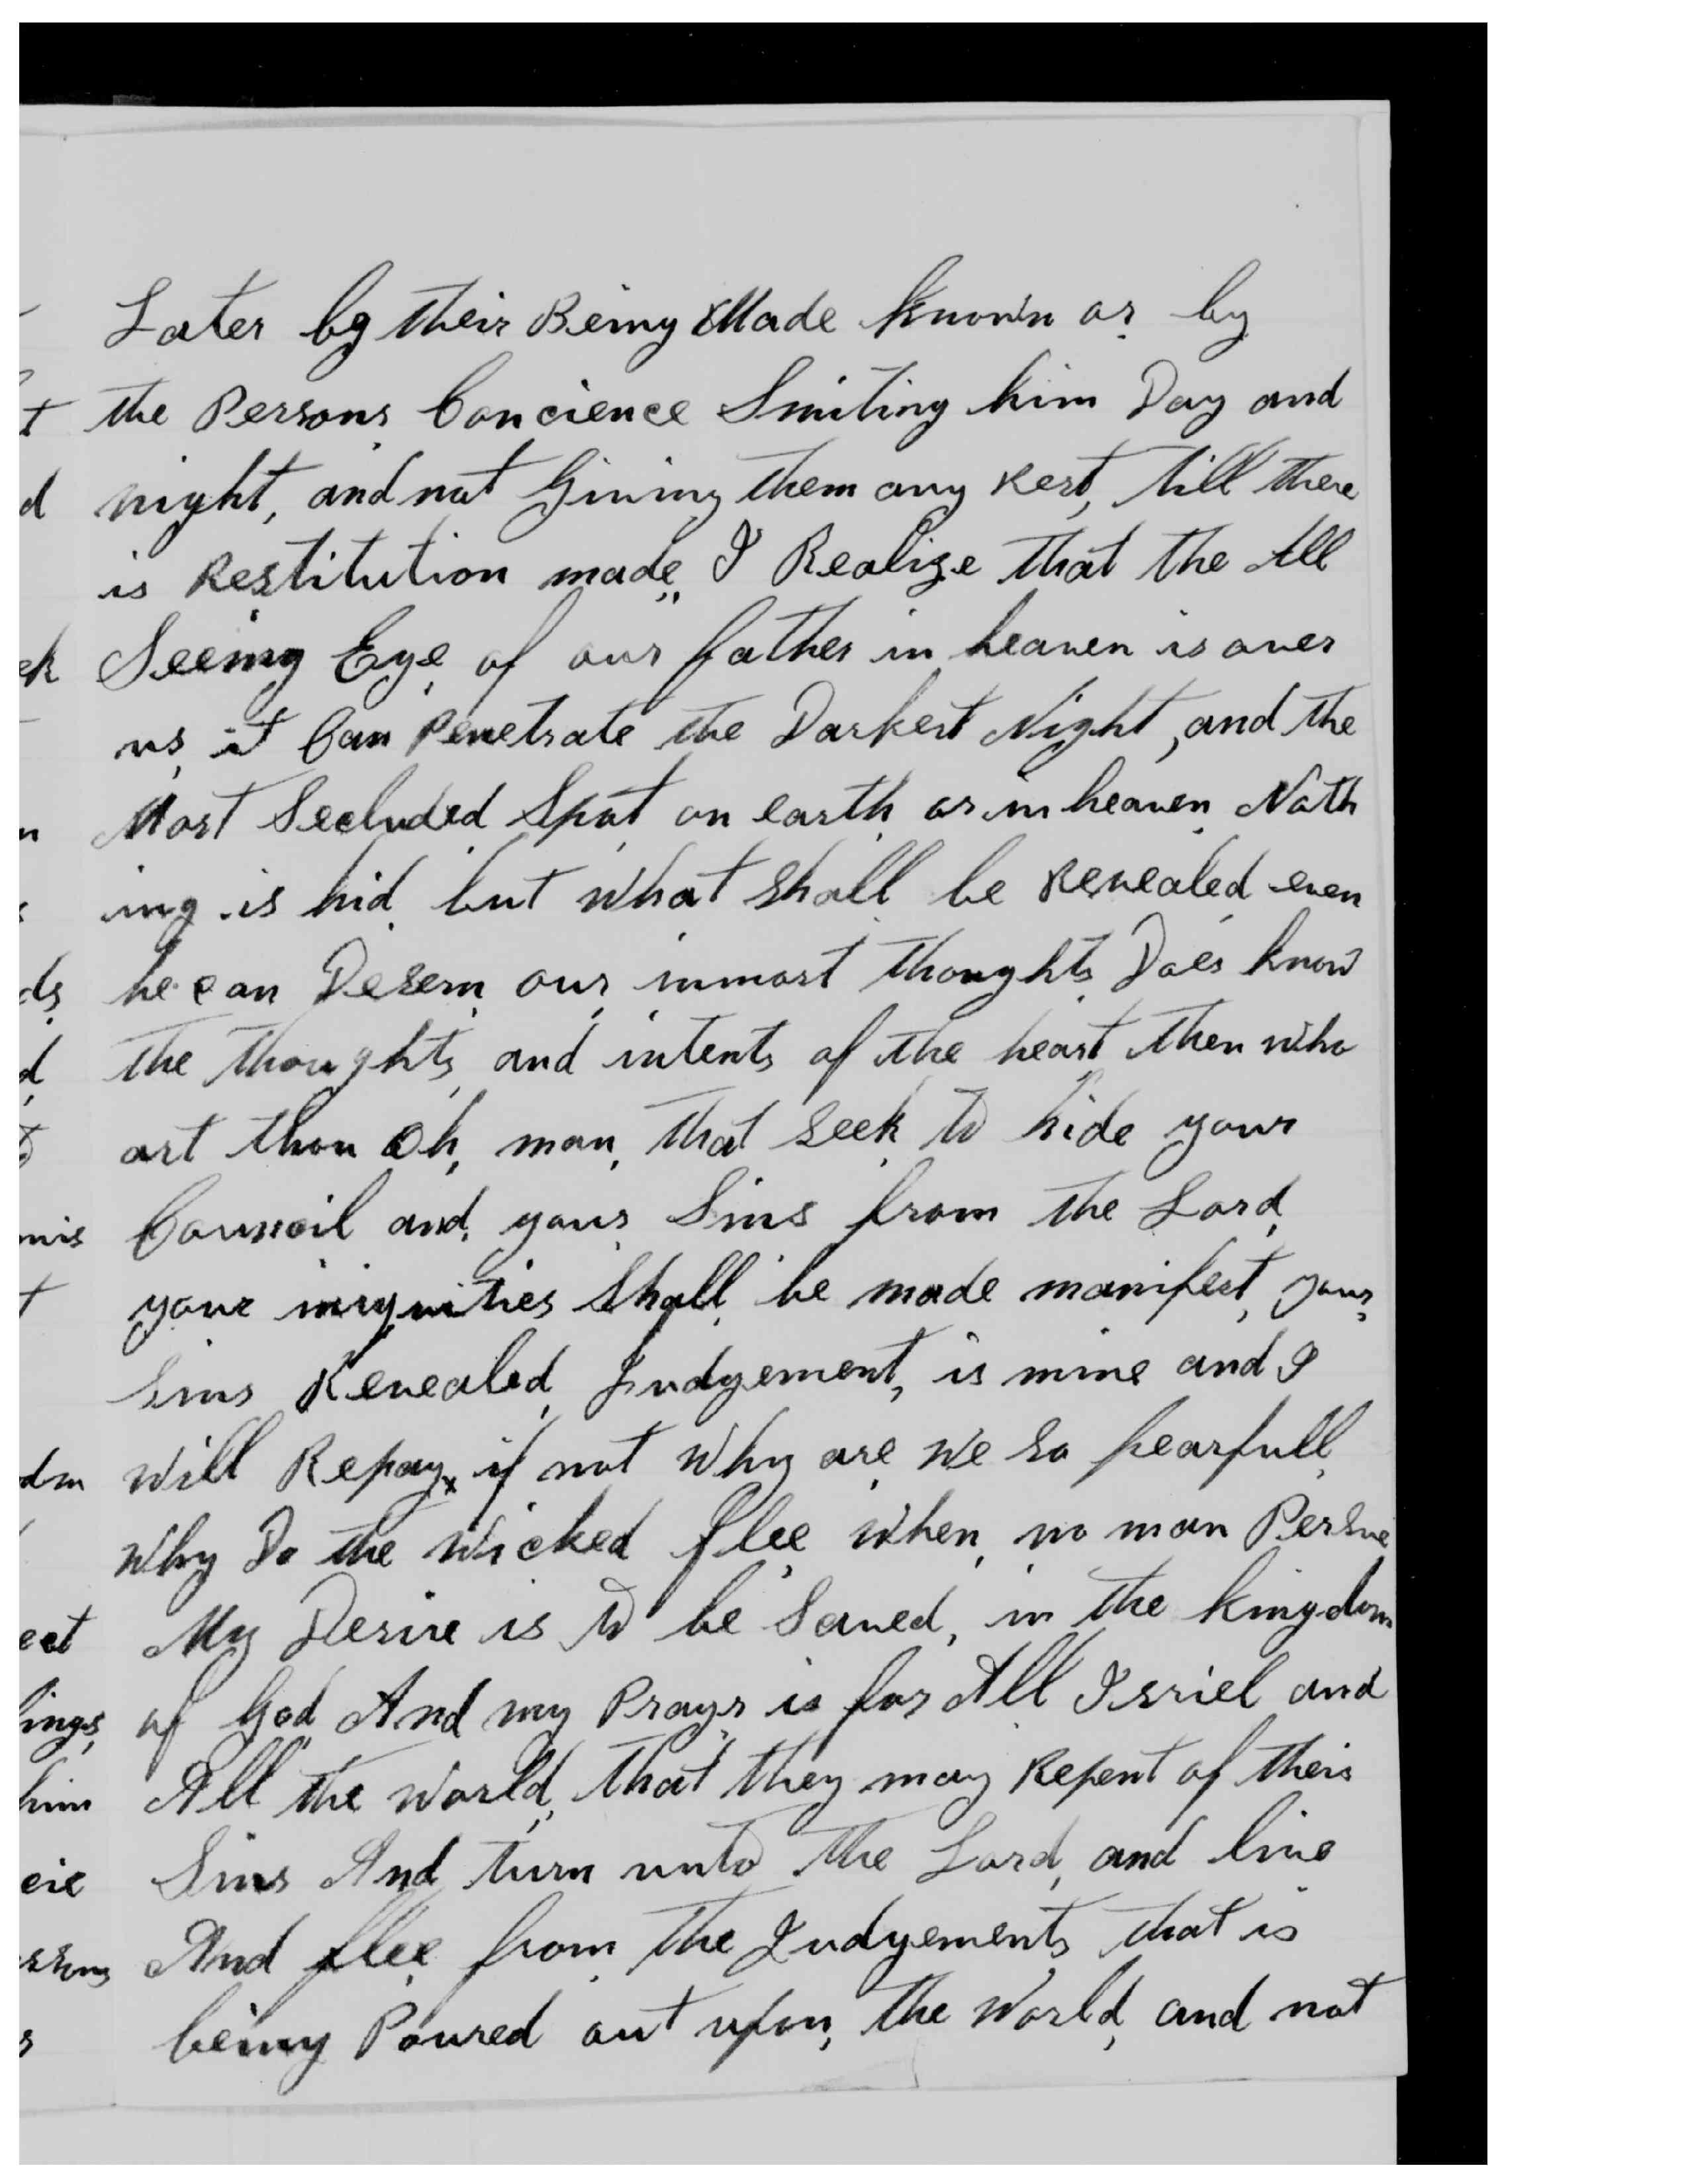 Later by their Being Made known or by
the Persons Concience Smiting him Day and
night, and not Giving them any Rest, till there
is Restitution made,, I Realize that the All
Seeing Eye, of our father in heaven is over
us, it Can Penetrate the Darkest Night, and the
Most Secluded Spot, on earth, or in heaven, Noth
ing is hid, but what shall, be Revealed even
he can Desern, our, inmost thoughts, Does know
the thoughts, and intents of the heart, then who
art thou Oh, man, that seek, to hide your
Council and, your, Sins from the Lord,
your iniquities Shall, be made manifest, your,
Sins Revealed, Judgement, is mine and I
will Repay x if not why are, we so fearfull,
why Do the wicked flee, when, no man Persue
My Desire is to be Saved, in the kingdom
of God, And my Prayr, is for All Isriel and
All the world, that they may Repent of their
Sins And, turn unto the Lord, and live
And flee from, the Judgements, that is
being Poured out upon, the world, and not